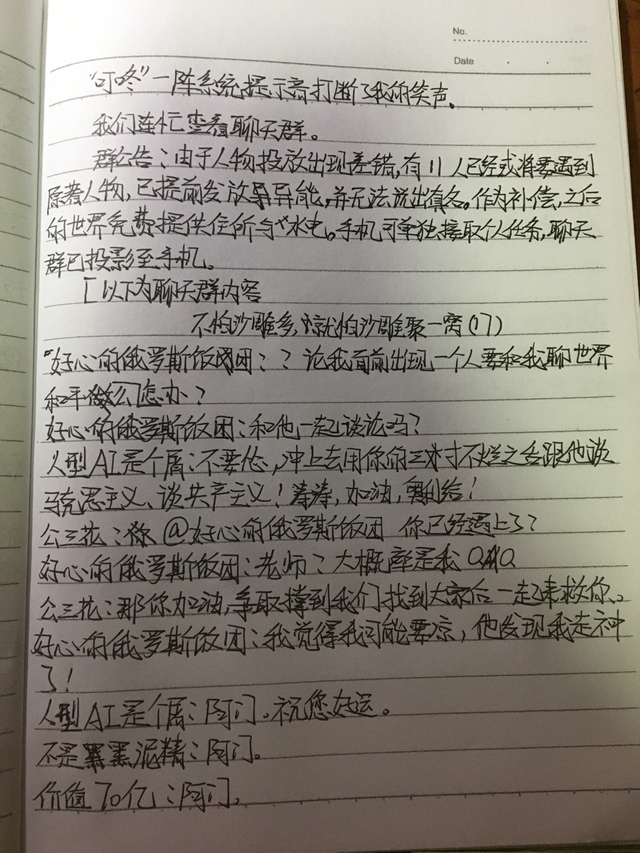 No.
Date
“叮咚”一阵系统提示音打断了我的笑声。
我们连忙查看聊天群。
群公告：由于人物投放出现差错，有11人已经或将要遇到
原著人物，已提前发放异能，并无法说出真名。作为补偿，之后
的世界免费提供住所与水电。手机可单独接取个人任务，聊天
群已投影至手机。
[以下为聊天群内容
不怕沙雕多，就怕沙雕聚一窝(17)
“好心的俄罗斯饭团：？论我面前出现一个人要和我聊世界
和平怎办？
好心的俄罗斯饭团：和他一起谈论吗？
人型AI是个屑：不要怂，冲上去用你的三寸不烂之舌跟他谈
马克思主义、谈共产主义！涛涛，加油，奥利给！
公三花：@好心的俄罗斯饭团 你已经遇上了？
好心的俄罗斯饭团：老师？大概率是我QAQ
公三花：那你加油，争取撑到我们找到大家后一起来救你。
好心的俄罗斯饭团：我觉得我可能要凉，他发现我走神
了！
人型AI是个屑：阿门。祝您好运。
不是黑泥精：阿门。
价值70亿：阿门。